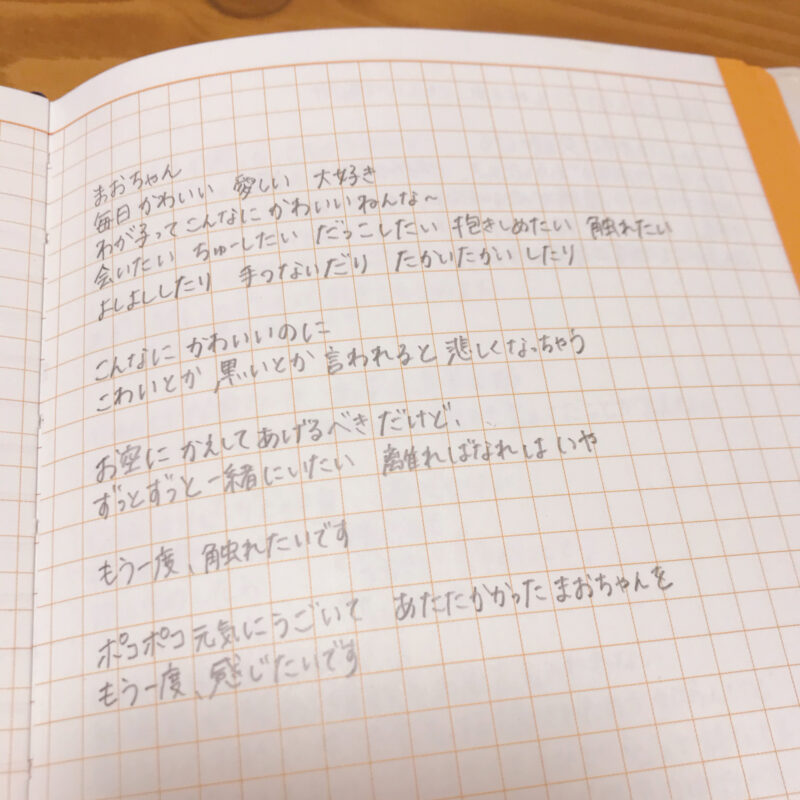 まおちゃん
毎日かわいい 愛しい 大好き
わが子ってこんなに かわいいねんな〜
会いたい ちゅーしたい だっこしたい 抱きしめたい 触れたい
よしよししたり 手つないだり たかいたかい したり
こんなに かわいいのに
こわいとか 黒いとか 言われると 悲しくなっちゃう
お空に かえしてあげるべきだけど、
ずっとずっと一緒にいたい 離ればなれは いや
もう一度、触れたいです
ポコポコ元気にうごいて あたたかかったまおちゃんを
もう一度、感じたいです